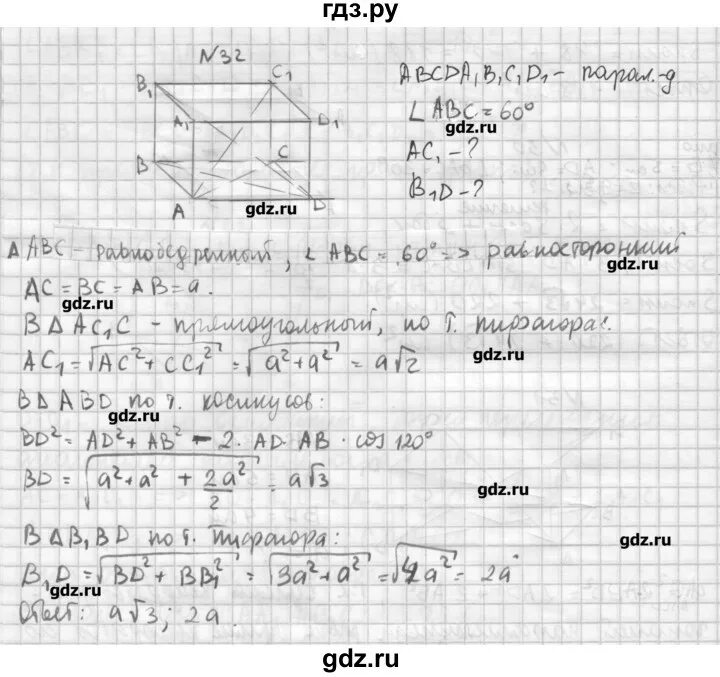 гдз.ру
№32
B₁
C₁
A₁
D₁
B
C
A
D
ABCDA₁B₁C₁D₁ – парал.-д
∠ABC = 60°
gdz.ru
AC₁ – ?
B₁D – ?
gdz.ru
△ABC – равнобедренный, ∠ABC = 60° => равносторонний
gdz.ru
AC = BC = AB = a.
gdz.ru
В △AC₁C – прямоугольный, по т. Пифагора:
AC₁ = √AC² + CC₁² = √a² + a² = a√2
gdz.ru
В △ABD по т. косинусов:
gdz.ru
BD² = AD² + AB² – 2 · AD · AB · cos 120°
BD = √a² + a² + 2a²/2 = a√3
gdz.ru
В △B₁BD по т. Пифагора:
gdz.ru
B₁D = √BD² + BB₁² = √3a² + a² = √4a² = 2a
gdz.ru
Ответ: a√3; 2a.
gdz.ru